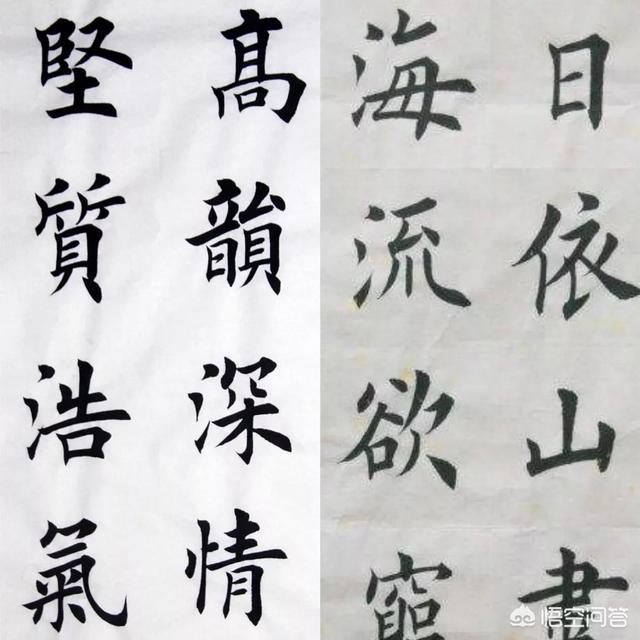 高韻深情
堅質浩氣
日依山盡
海流欲窮
悟空问答